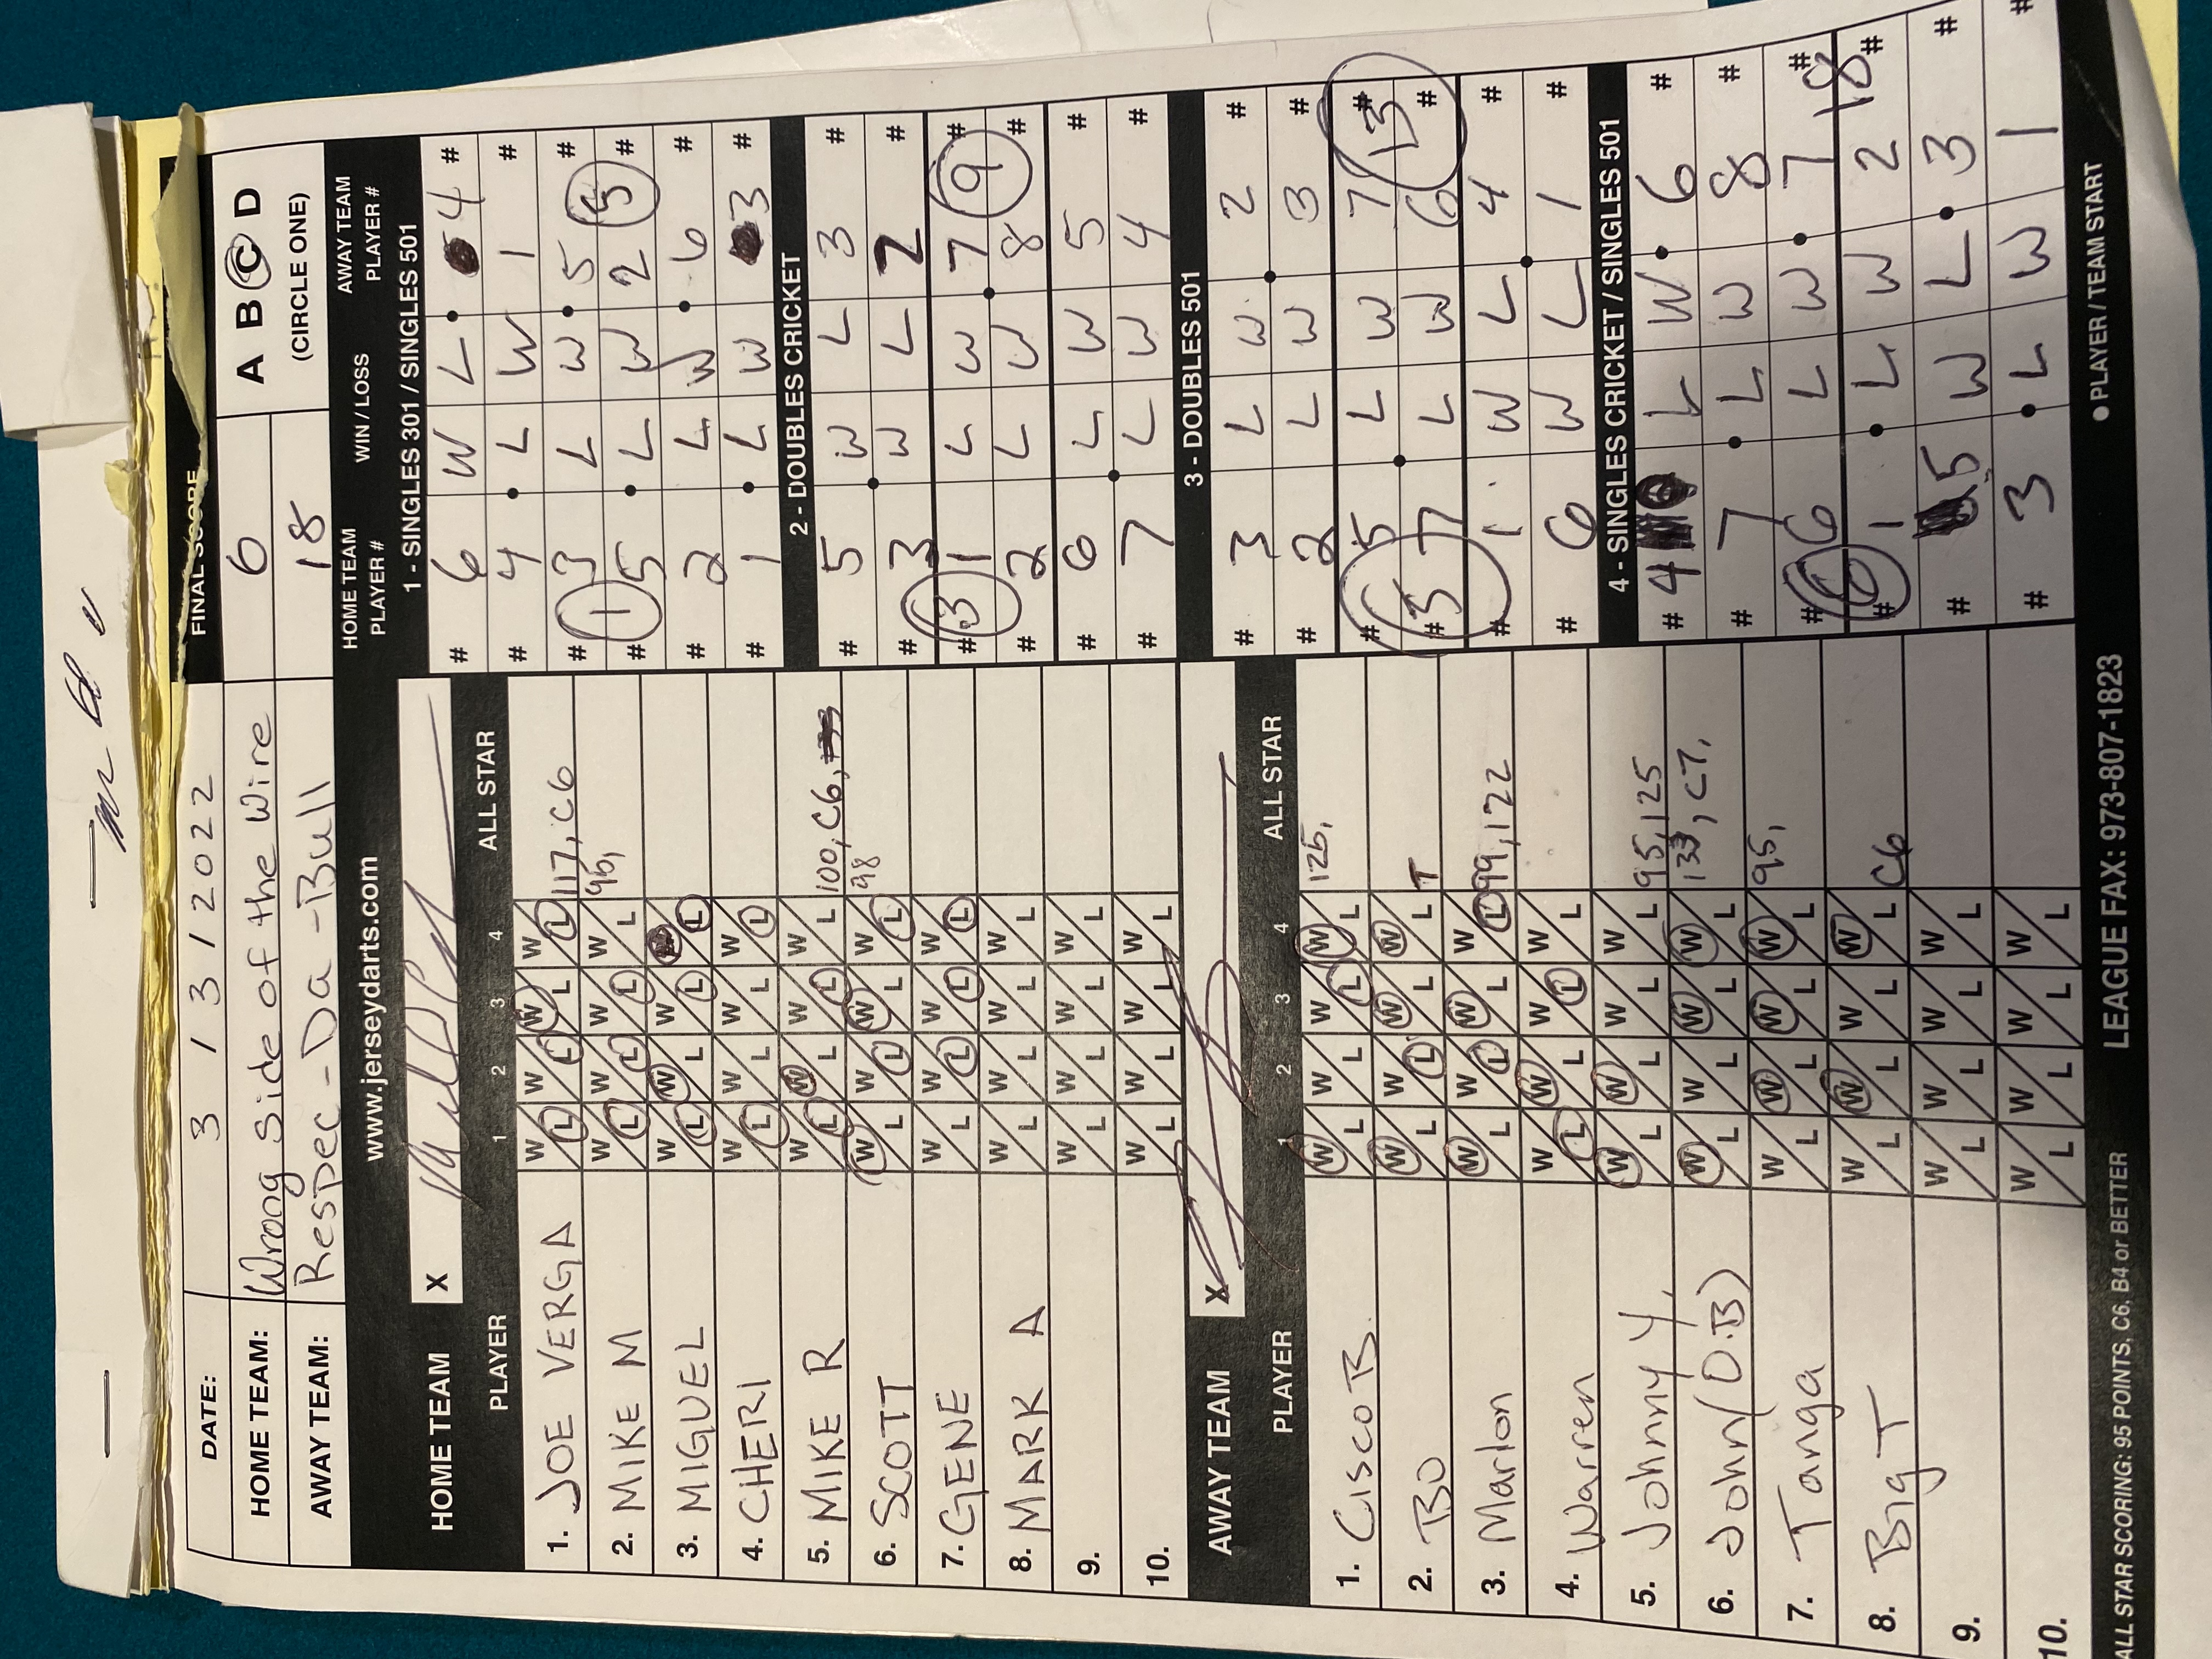 FINAL SCORE
DATE: 3 / 3 / 2022
HOME TEAM: Wrong Side of the Wire 6 A B C D
AWAY TEAM: Respec-Da-Bull 18 (CIRCLE ONE)
www.jerseydarts.com
HOME TEAM X
PLAYER 1 2 3 4 ALL STAR
1. JOE VERGA W L W L W L W L 117, C6
2. MIKE M W L W L W L W L 95,
3. MIGUEL W L W L W L L
4. CHERI W L W L W L W L
5. MIKE R W L W L W L W L 100, C6,
6. SCOTT W L W L W L W L 98
7. GENE W L W L W L W L
8. MARK A W L W L W L W L
9. W L W L W L W L
10. W L W L W L W L
AWAY TEAM X
PLAYER 1 2 3 4 ALL STAR
1. Cisco B. W L W L W L W L 125,
2. BO W L W L W L W L T
3. Marlon W L W L W L W L 99, 122
4. Warren W L W L W L W L
5. Johnny Y. W L W L W L W L 95, 125
6. John (O.B) W L W L W L W L 133, C7,
7. Tanga W L W L W L W L 95,
8. Big T W L W L W L W L C6
9. W L W L W L W L
10. W L W L W L W L
HOME TEAM PLAYER # WIN / LOSS AWAY TEAM PLAYER #
1 - SINGLES 301 / SINGLES 501
# 6 W L 4 #
# 4 L W 1 #
# 3 L W 5 #
# 1 5 L W 2 5 #
# 2 L W 6 #
# 1 L W 3 #
2 - DOUBLES CRICKET
# 5 W L 3 #
# 3 W L 2 #
# 3 1 L W 7 9 #
# 2 L W 8 #
# 6 L W 5 #
# 7 L W 4 #
3 - DOUBLES 501
# 3 L W 2 #
# 2 L W 3 #
# 5 L W 7 13 #
# 5 7 L W 6 #
# 1 W L 4 #
# 6 W L 1 #
4 - SINGLES CRICKET / SINGLES 501
# 4 L W 6 #
# 7 L W 8 #
# 6 L W 7 #
# 6 1 L W 2 18 #
# 5 W L 3 #
# 3 L W 1 #
ALL STAR SCORING: 95 POINTS, C6, B4 or BETTER LEAGUE FAX: 973-807-1823 ● PLAYER / TEAM START